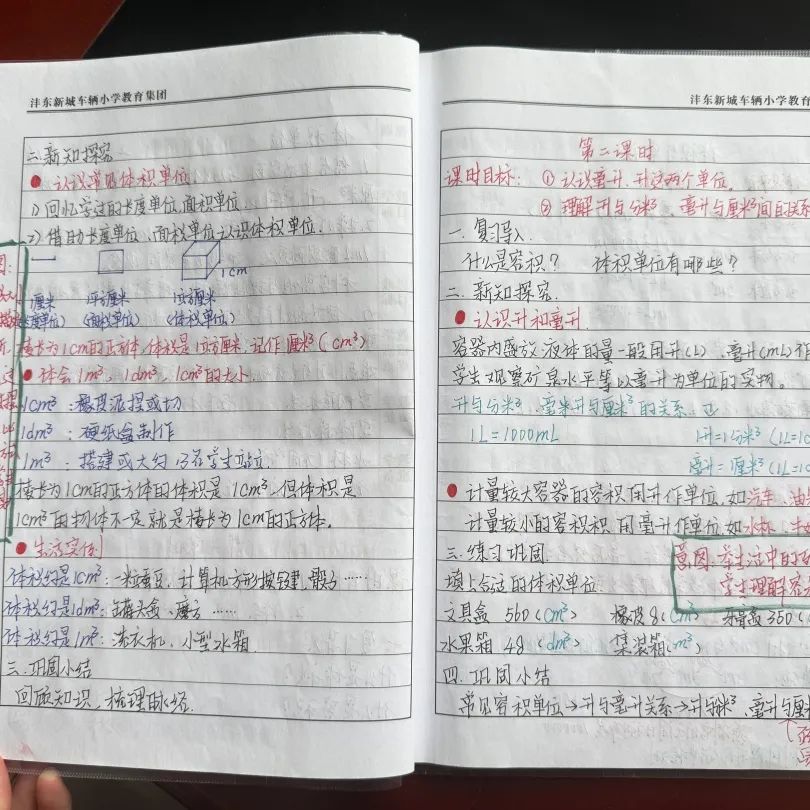 沣东新城车辆小学教育集团
二.新知探究
● 认识常见体积单位
1) 回忆学过的长度单位,面积单位.
2) 借助长度单位、面积单位认识体积单位.
1cm
1厘米 1平方厘米 1立方厘米
(长度单位) (面积单位) (体积单位)
棱长为1cm的正方体,体积是1立方厘米,记作厘米³(cm³)
● 体会1m³, 1dm³, 1cm³的大小.
1cm³:橡皮泥捏或切
1dm³:硬纸盒制作
1m³:搭建或大勾
棱长为1cm的正方体的体积是1cm³,但体积是
1cm³的物体不一定就是棱长为1cm的正方体.
● 生活实例
体积约是1cm³:一粒蚕豆、计算机方形按键、骰子……
体积约是1dm³:罐头盒、魔方……
体积约是1m³:洗衣机、小型水箱.
三.巩固小结
回顾知识,梳理脉络.
沣东新城车辆小学教育
第二课时
课时目标: ① 认识毫升、升这两个单位.
② 理解升与分米³、毫升与厘米³间的关系
一.复习导入.
什么是容积? 体积单位有哪些?
二.新知探究.
● 认识升和毫升.
容器内盛放液体的量一般用升(L)、毫升(mL)作
学生观察矿泉水平等以毫升为单位的实物。
升与分米³、毫米升与厘米³的关系
1L=1000mL 1升=1分米³(1L=1
毫升=厘米³(1L=1c
● 计量较大容器的容积用升作单位,如汽车、油
计量较小的容积积用毫升作单位,如水杯、
三.练习巩固.
意图:学生活中的
填上合适的体积单位.
学生理解容
文具盒 560(cm³) 橡皮8(cm³) 牙膏盒350(
水果箱 48(dm³) 集装箱(m³)
四.巩固小结
常见容积单位→升与毫升关系→升与米³、毫升与厘米